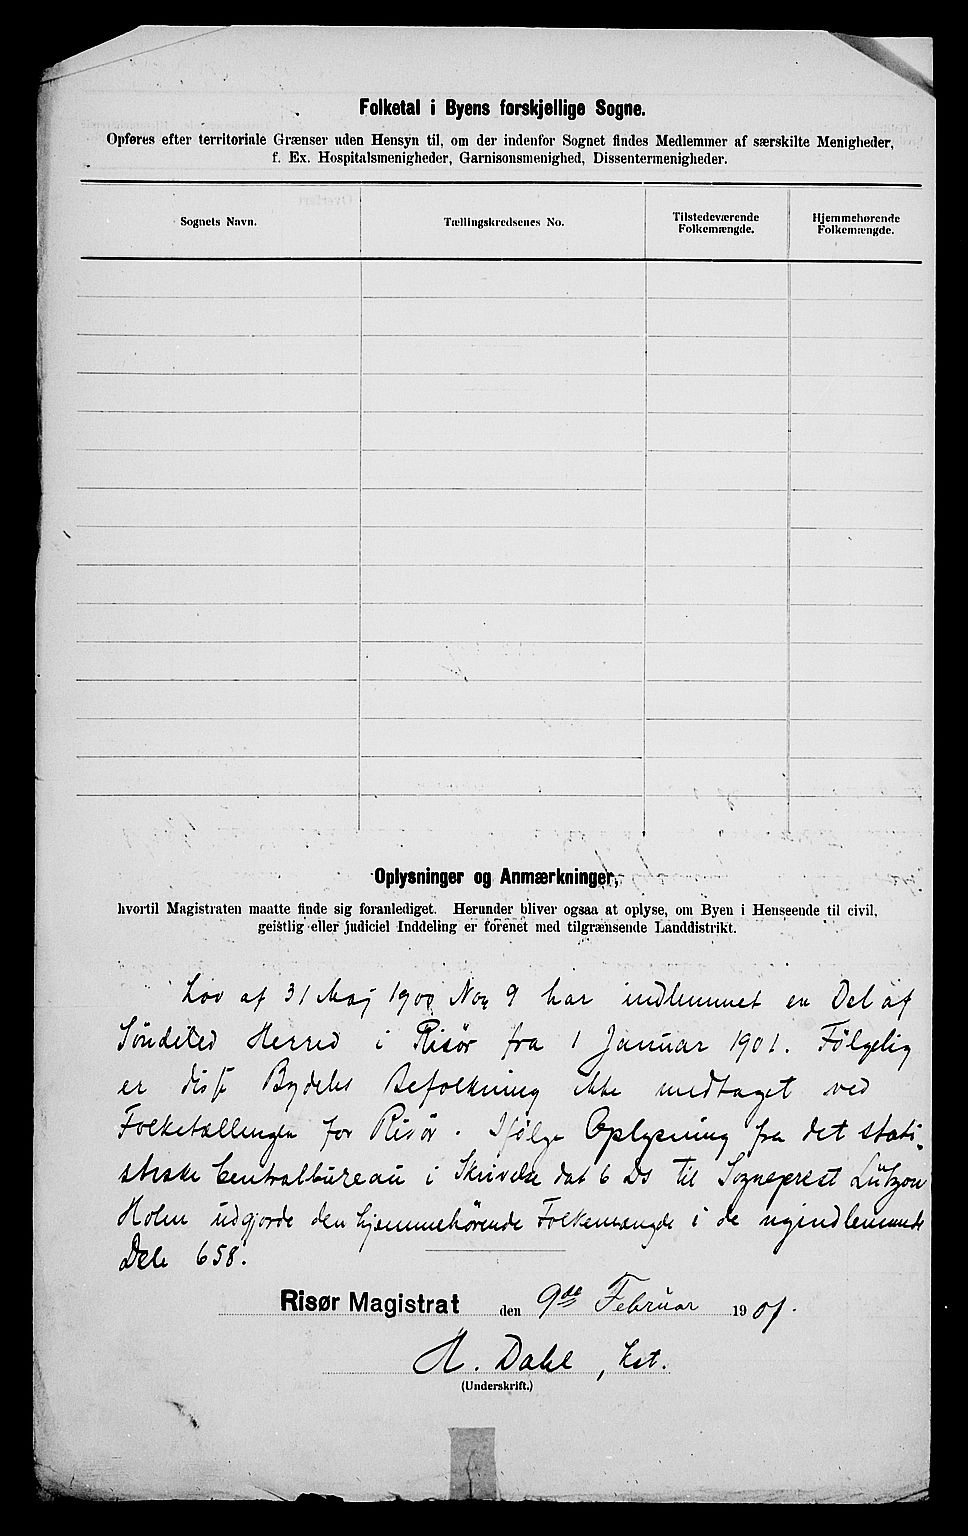 Folketal i Byens forskjellige Sogne.
Opføres efter territoriale Grænser uden Hensyn til, om der indenfor Sognet findes Medlemmer af særskilte Menigheder,
f. Ex. Hospitalsmenigheder, Garnisonsmenighed, Dissentermenigheder.
Sognets Navn. Tællingskredsenes No. Tilstedeværende Folkemængde. Hjemmehørende Folkemængde.
Oplysninger og Anmærkninger,
hvortil Magistraten maatte finde sig foranlediget. Herunder bliver ogsaa at oplyse, om Byen i Henseende til civil,
geistlig eller judiciel Inddeling er forenet med tilgrænsende Landdistrikt.
Lov af 31 Maj 1900 No 9 har indlemmet en Del af
Søndeled Herred i Risør fra 1 Januar 1901. Følgelig
er disse Bydeles Befolkning ikke medtaget ved
Folketællingen for Risør. Ifølge Oplysning fra det stati-
stiske Centralbureau i Skrivelse dat 6 Ds til Sogneprest Lützow
Holm udgjorde den hjemmehørende Folkemængde i de nyindlemmede
Dele 658.
Risør Magistrat den 9de Februar 1901.
H. Dahl, kst.
(Underskrift.)